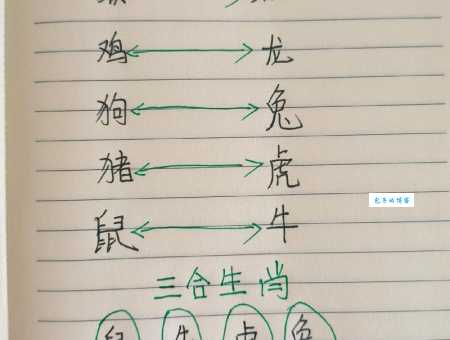 鸡 ↔ 龙
狗 ↔ 兔
猪 ↔ 虎
鼠 ↔ 牛
三合生肖
鼠 牛 虎 兔